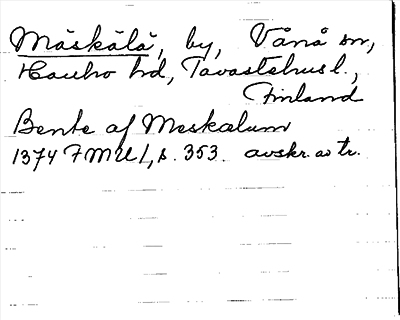 Mäskälä, by, Vånå sn,
Hauho hd, Tavastehus l.,
Finland
Bente af Meskalum
1374 FMU I, s. 353. avskr. av tr.